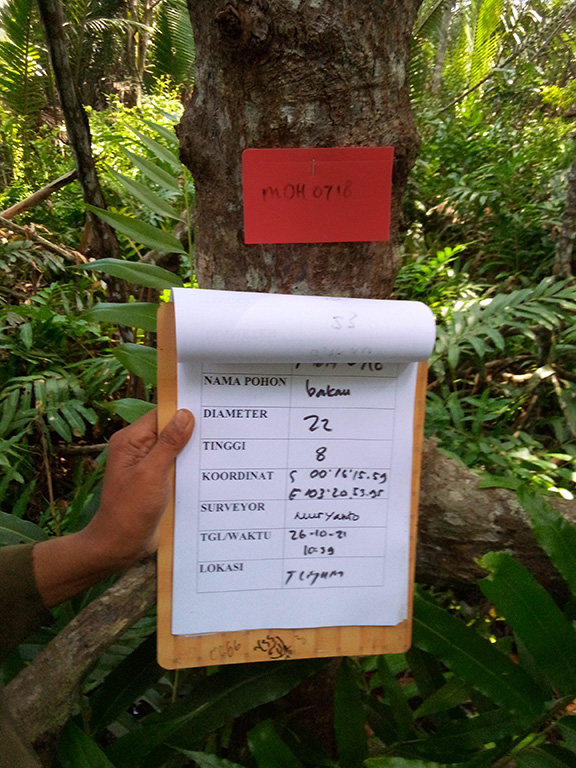 MOH 0718
53
NAMA POHON bakau
DIAMETER 22
TINGGI 8
KOORDINAT S 00°16'15.59
E 103°20.53.95
SURVEYOR nuryanto
TGL/WAKTU 26-10-21
10:39
LOKASI